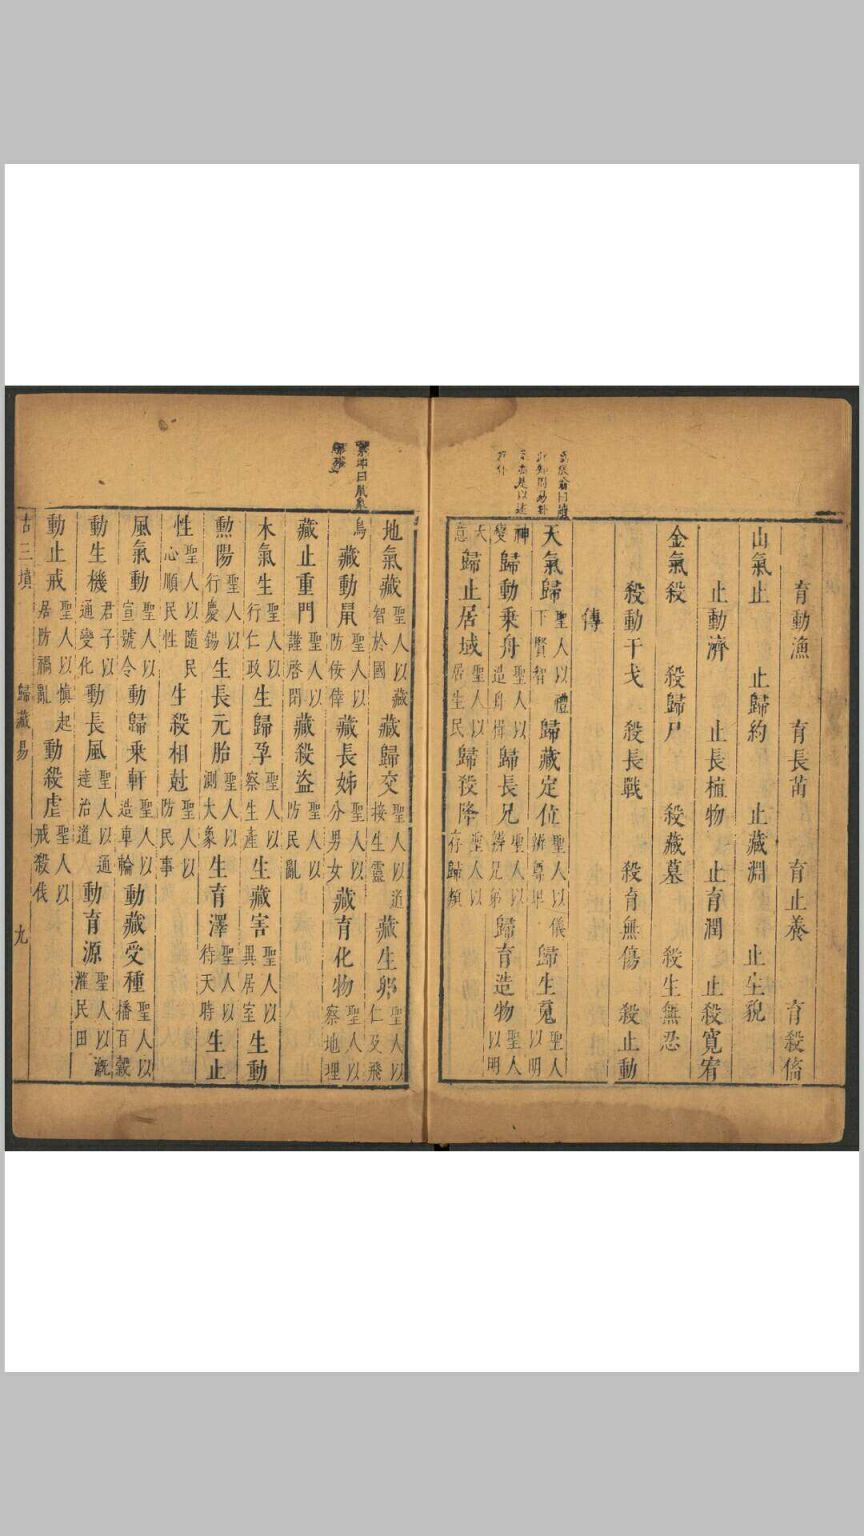 育動漁　育長苗　育止養　育殺僃
山氣止　止歸約　止藏淵　止生貌
止動濟　止長植物　止育潤　止殺寬宥
金氣殺　殺歸尸　殺藏墓　殺生無忍
殺動干戈　殺長戰　殺育無傷　殺止動
傳
天氣歸聖人以禮下賢智歸藏定位聖人以儀歸生䰟聖人以明
神變歸動乘舟聖人以造舟歸長兄聖人以辨兄弟歸育造物聖人以明
天意歸止居域聖人以居生民歸殺降聖人以
地氣藏聖人以藏智於國藏歸交聖人以道接生靈藏生卵聖人以仁及飛
鳥藏動鼠聖人以防佞倖藏長姊聖人以分男女藏育化物聖人以察地理
藏止重門聖人以謹啓閉藏殺盜聖人以防民亂
木氣生聖人以行仁政生歸孕聖人以察生產生藏害聖人以異居室生動
勲陽聖人以行慶錫生長元胎聖人以測大象生育澤聖人以待天時生止
性聖人以隨民心順民性生殺相尅聖人以防民事
風氣動聖人以宣號令動歸乘軒聖人以造車輪動藏受種聖人以播百穀
動生機君子以通變化動長風聖人以通達治道動育源聖人以漑灌民田
動止戒聖人以愼起居防禍亂動殺虐聖人以戒殺伐
古三墳　歸藏易　九